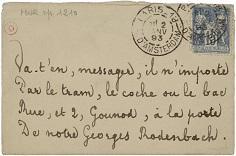 MNR Ms 1210
PARIS
2
JANV
93
D'AMSTERDAM
Va-t'en, messager, il n'importe
Par le tram, le coche ou le bac
Rue, et 2, Gounod, à la porte
De notre Georges Rodenbach.